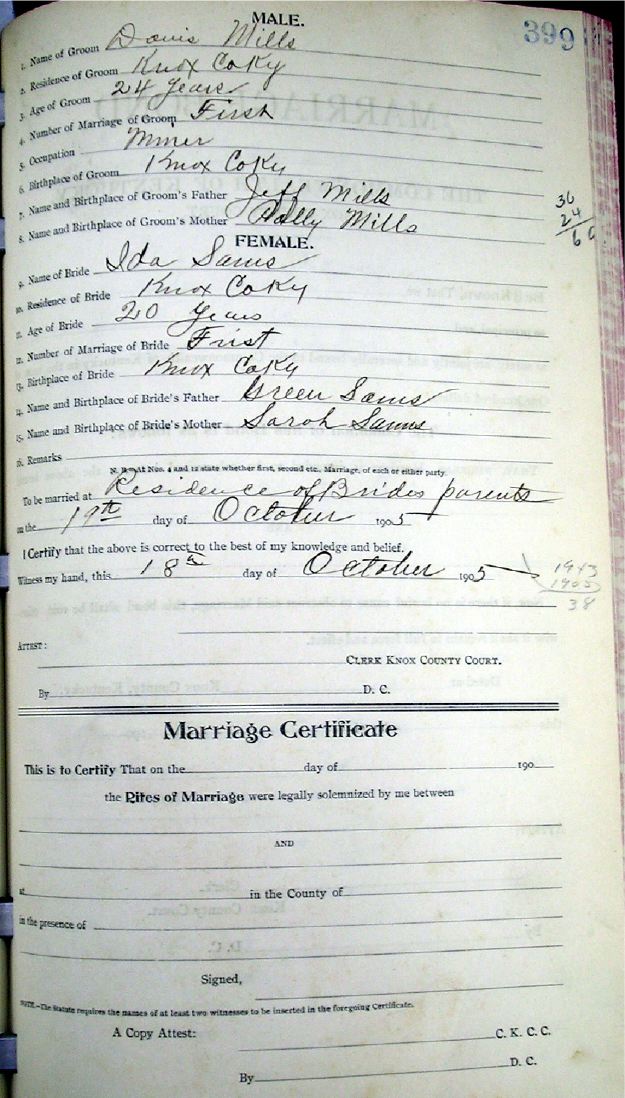 MALE.
399
1. Name of Groom Davis Mills
2. Residence of Groom Knox Co Ky
3. Age of Groom 24 Years
4. Number of Marriage of Groom First
5. Occupation Miner
6. Birthplace of Groom Knox Co Ky
7. Name and Birthplace of Groom's Father Jeff Mills
8. Name and Birthplace of Groom's Mother Polly Mills
36
24
60
FEMALE.
9. Name of Bride Ida Sams
10. Residence of Bride Knox Co Ky
11. Age of Bride 20 Years
12. Number of Marriage of Bride Frist
13. Birthplace of Bride Knox Co Ky
14. Name and Birthplace of Bride's Father Green Sams
15. Name and Birthplace of Bride's Mother Sarah Sams
16. Remarks
N. B.—At Nos. 4 and 12 state whether first, second etc., Marriage, of each or either party.
To be married at Residence of Brides parents
on the 19th day of October 1905
I Certify that the above is correct to the best of my knowledge and belief.
Witness my hand, this 18th day of October 1905
1943
1905
38
ATTEST:
CLERK KNOX COUNTY COURT.
By D. C.
Marriage Certificate
This is to Certify That on the day of 190
the Rites of Marriage were legally solemnized by me between
AND
at in the County of
in the presence of
Signed,
NOTE.—The Statute requires the names of at least two witnesses to be inserted in the foregoing Certificate.
A Copy Attest: C. K. C. C.
By D. C.